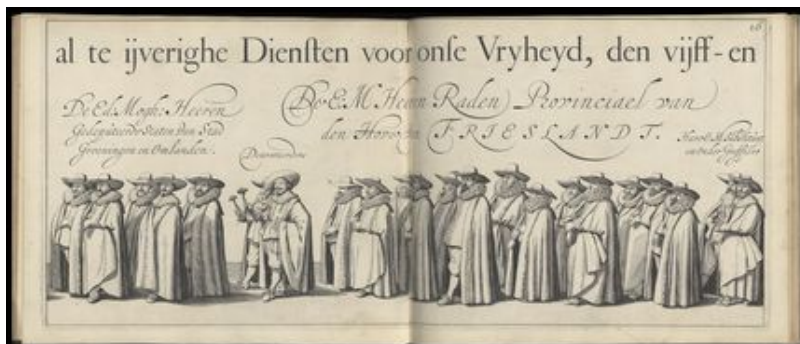 al te ijverighe Dienſten voor onſe Vryheyd, den vijff-en
16
De Ed. Mogh. Heeren
Gedeputeerde Staten den Stad
Groeningen en Omlanden.
De E. M. Heeren Raden Provinciael van
den Hove in FRIESLANDT.